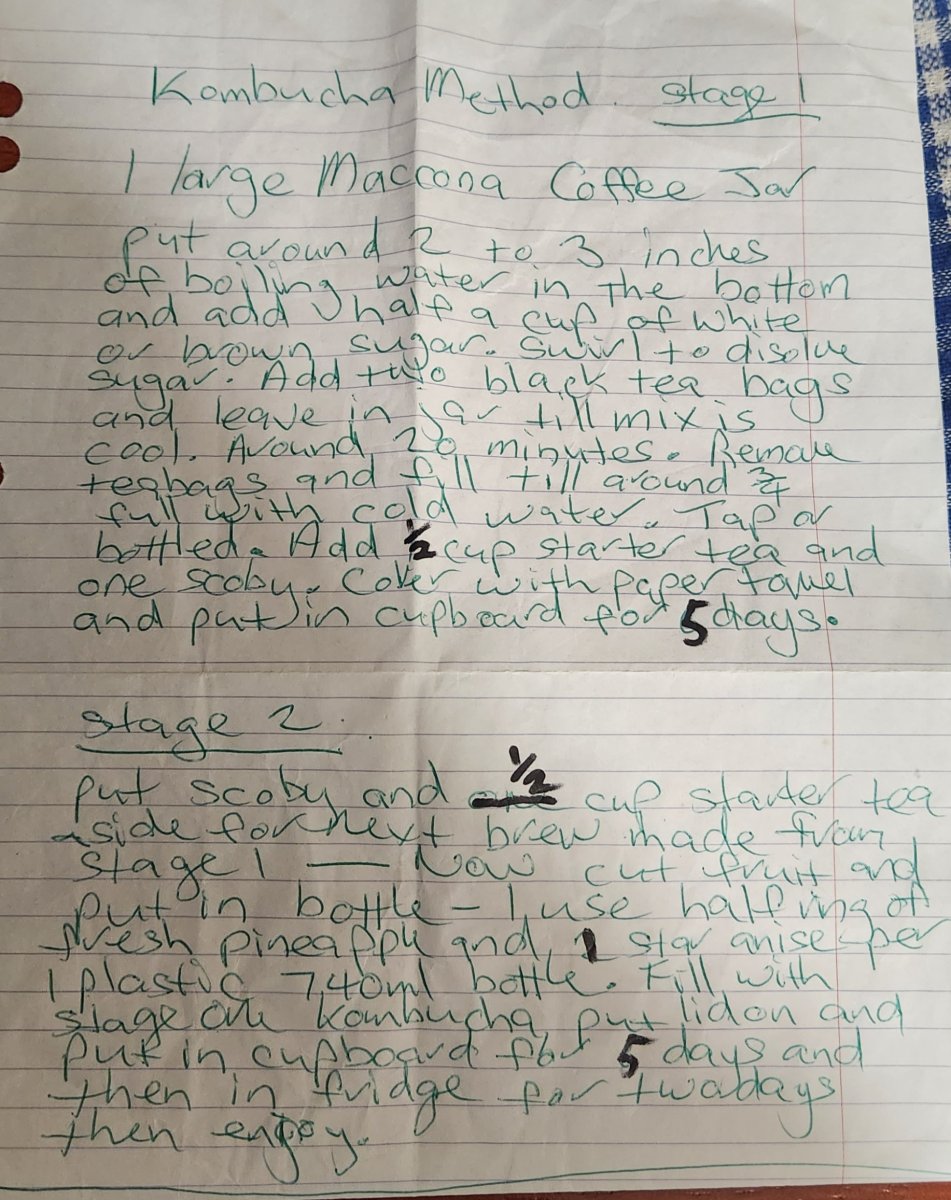 Kombucha Method. Stage 1
1 large Maccona Coffee Jar
put around 2 to 3 inches
of boiling water in the bottom
and add half a cup of white
or brown sugar. Swirl to disolve
sugar. Add two black tea bags
and leave in jar till mix is
cool. Around 20 minutes. Remove
teabags and fill till around 3/4
full with cold water. Tap or
bottled. Add 1/2 cup starter tea and
one scoby. Cover with paper towel
and put in cupboard for 5 days.
Stage 2.
put scoby and 1/2 cup starter tea
aside for next brew made from
stage 1 — Now cut fruit and
put in bottle - I use half ring of
fresh pineapple and 1 star anise per
1 plastic 740ml bottle. Fill with
stage one kombucha put lid on and
put in cupboard for 5 days and
then in fridge for two days
then enjoy.